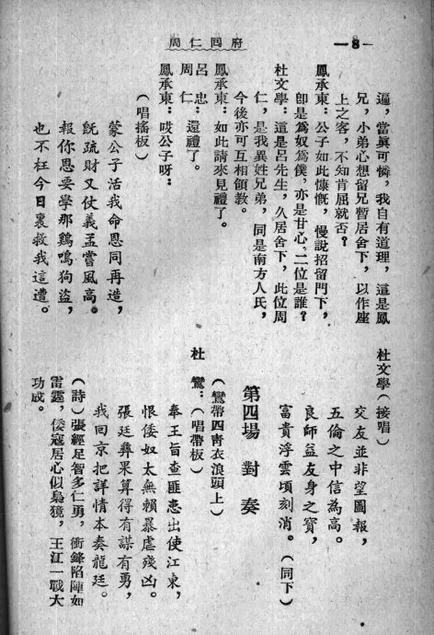 周仁囘府
—8—
遍，當眞可憐，我自有道理，這是鳳
兄，小弟心想留兄暫居舍下，以作座
上之客，不知肯屈就否？
鳳承東：公子如此慷慨，慢說招留門下，
卽是爲奴爲僕，亦是甘心，二位是誰？
杜文學：這是呂先生，久居舍下，此位周
仁，是我異姓兄弟，同是南方人氏，
今後亦可互相領教。
鳳承東：如此請來見禮了。
呂　忠：
周　仁：還禮了。
鳳承東：哎公子呀：
（唱搖板）
蒙公子活我命恩同再造，
旣疏財又仗義孟嘗風高。
報你恩要學那鷄鳴狗盜，
也不枉今日裏救我這遭。
杜文學（接唱）
交友並非望圖報，
五倫之中信為高。
良師益友身之寶，
富貴浮雲頃刻消。（同下）
第四場　對奏
（鸞帶四青衣浪頭上）
杜　鸞：（唱帶板）
奉王旨查匪患出使江東，
恨倭奴太無賴暴虐殘凶。
張廷彝果算得有謀有勇，
我回京把詳情本奏龍廷。
（詩）張經足智多仁勇，衝鋒陷陣如
雷霆，倭寇居心似梟獍，王江一戰大
功成。